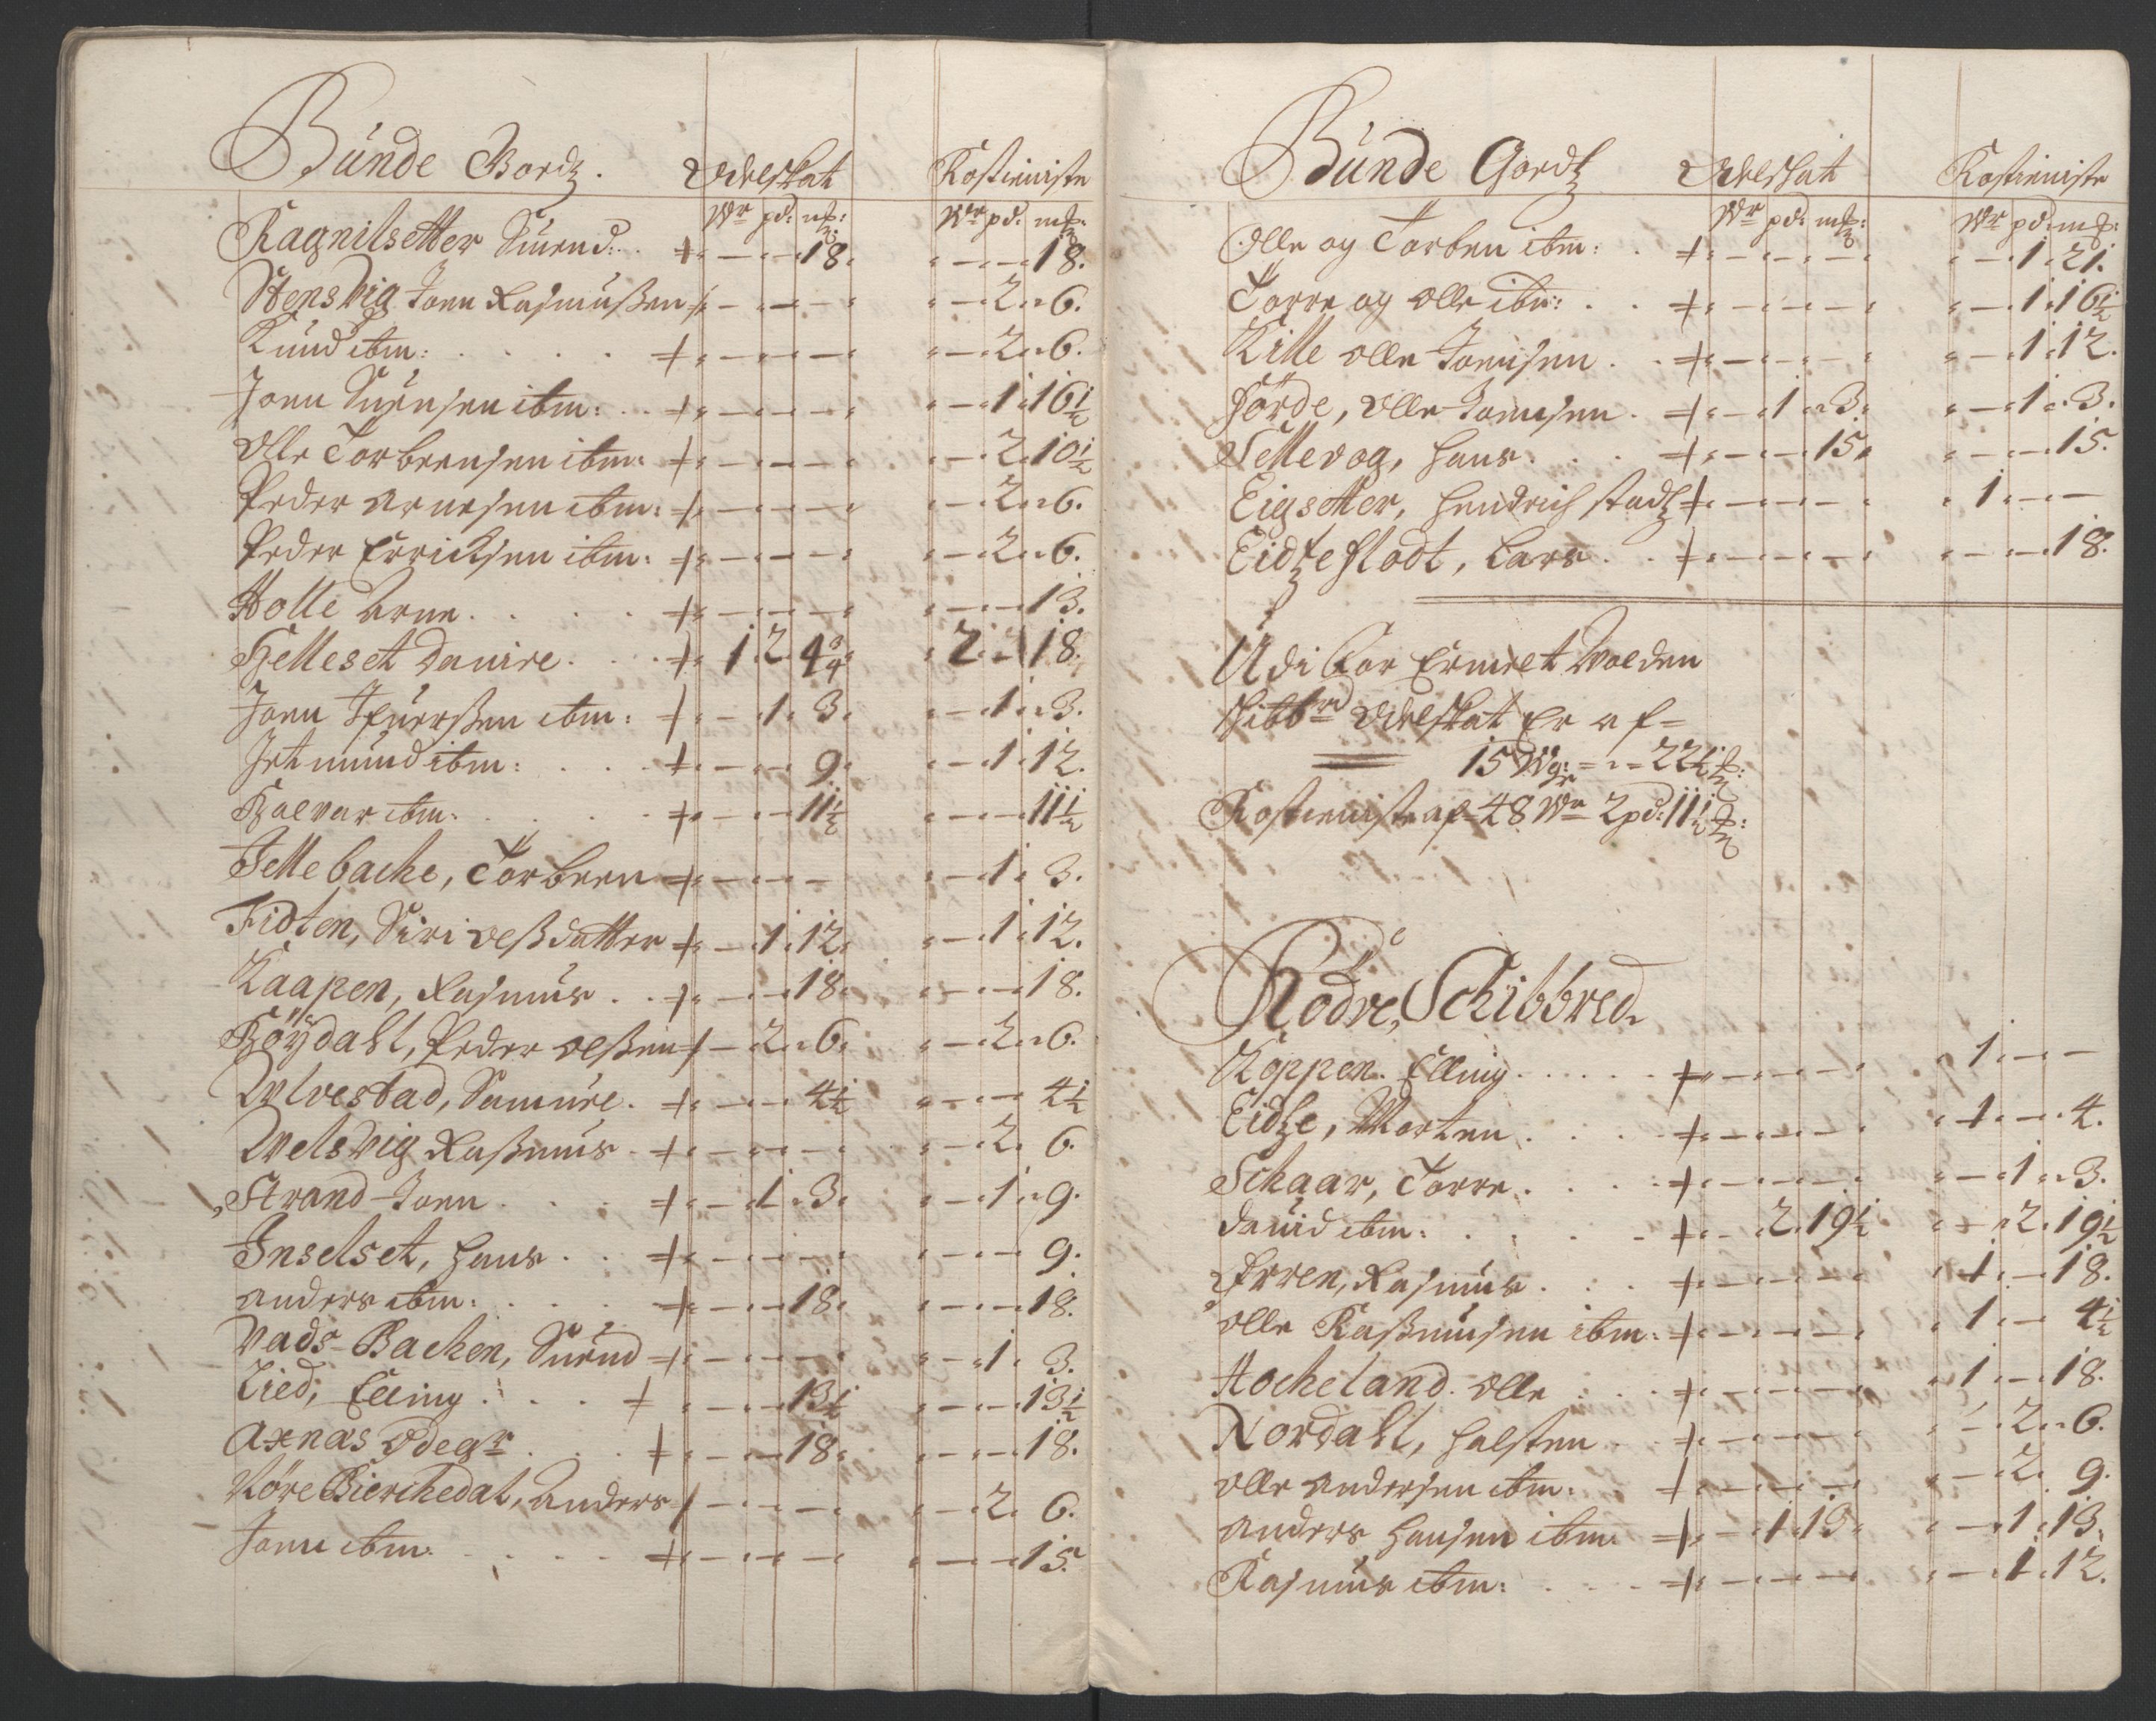 Bünde Gordz. Odelskat Kostieniste
Wr pd: mk: Wr pd: mk:
Ragnilsetter Siuend: 18. 18.
Stensvig Jonn Rasmußen 2. 6.
Knud ibm: 2. 6.
Jonn Siuensen ibm: 1. 16½
Olle Torbeensen ibm: 2. 10½
Peder Arnesen ibm: 2. 6.
Peder Erricksen ibm: 2. 6.
Holle Arne 13.
Helleset Dauire 1. 2. 4¾ 2. 18.
Jonn Ifuerßen ibm: 1. 3. 1. 3.
Jetmund ibm: 9. 1. 12.
Halvar ibm: 11½ 11½
Tellebache, Torbeen 1. 3.
Fidten, Siri Oelßdatter 1. 12. 1. 12.
Kaapen, Rasmus 18. 18.
Höydahl, Peder Oelßen 2. 6. 2. 6.
Wlvestad, Samuel 4½ 4½
Welsvig Rasmus 2. 6.
Strand Jonn 1. 3. 1. 9.
Inselset, Hans 9.
Anders ibm: 18. 18.
Vads-Bachen, Siuend 1. 3.
Lied, Elling 13½ 13½
Axnas Ødegr 18. 18.
Köre Bierchedal, Anders 2. 6.
Jonn ibm: 15.
Bünde Gordz Odelskat Kostieniste
Wr pd: mk: Wr pd: mk:
Olle og Torben ibm: 1. 21.
Torre og Olle ibm: 1. 16½
Kille Olle Jonnsen 1. 12.
Förde, Olle Jonnsen 1. 3. 1. 3.
Settevog, Hans 15. 15.
Eigsetter, Hendrich Stadz 1.
Eidzeflodt, Lars 18.
Udi for Ermelt Wolden
Skibbrd Odelskat Er af
15 Wgr 22½ mk:
Kostieniste af 48 Wr 2 pd: 11½ mk:
Rödve, Schibbred
Koppen. Elling 1.
Eidze, Morten 1. 4.
Schaar, Torre 1. 3.
David ibm: 2. 19½ 2. 19½
Ørren, Rasmus 1. 18.
Olle Rasmusen ibm: 1. 4½
Hocheland. Olle 1. 18.
Nordahl, Halsten 2. 6.
Olle Andersen ibm: 2. 9.
Anders Hansen ibm: 1. 13. 1. 13.
Rasmus ibm: 1. 12.